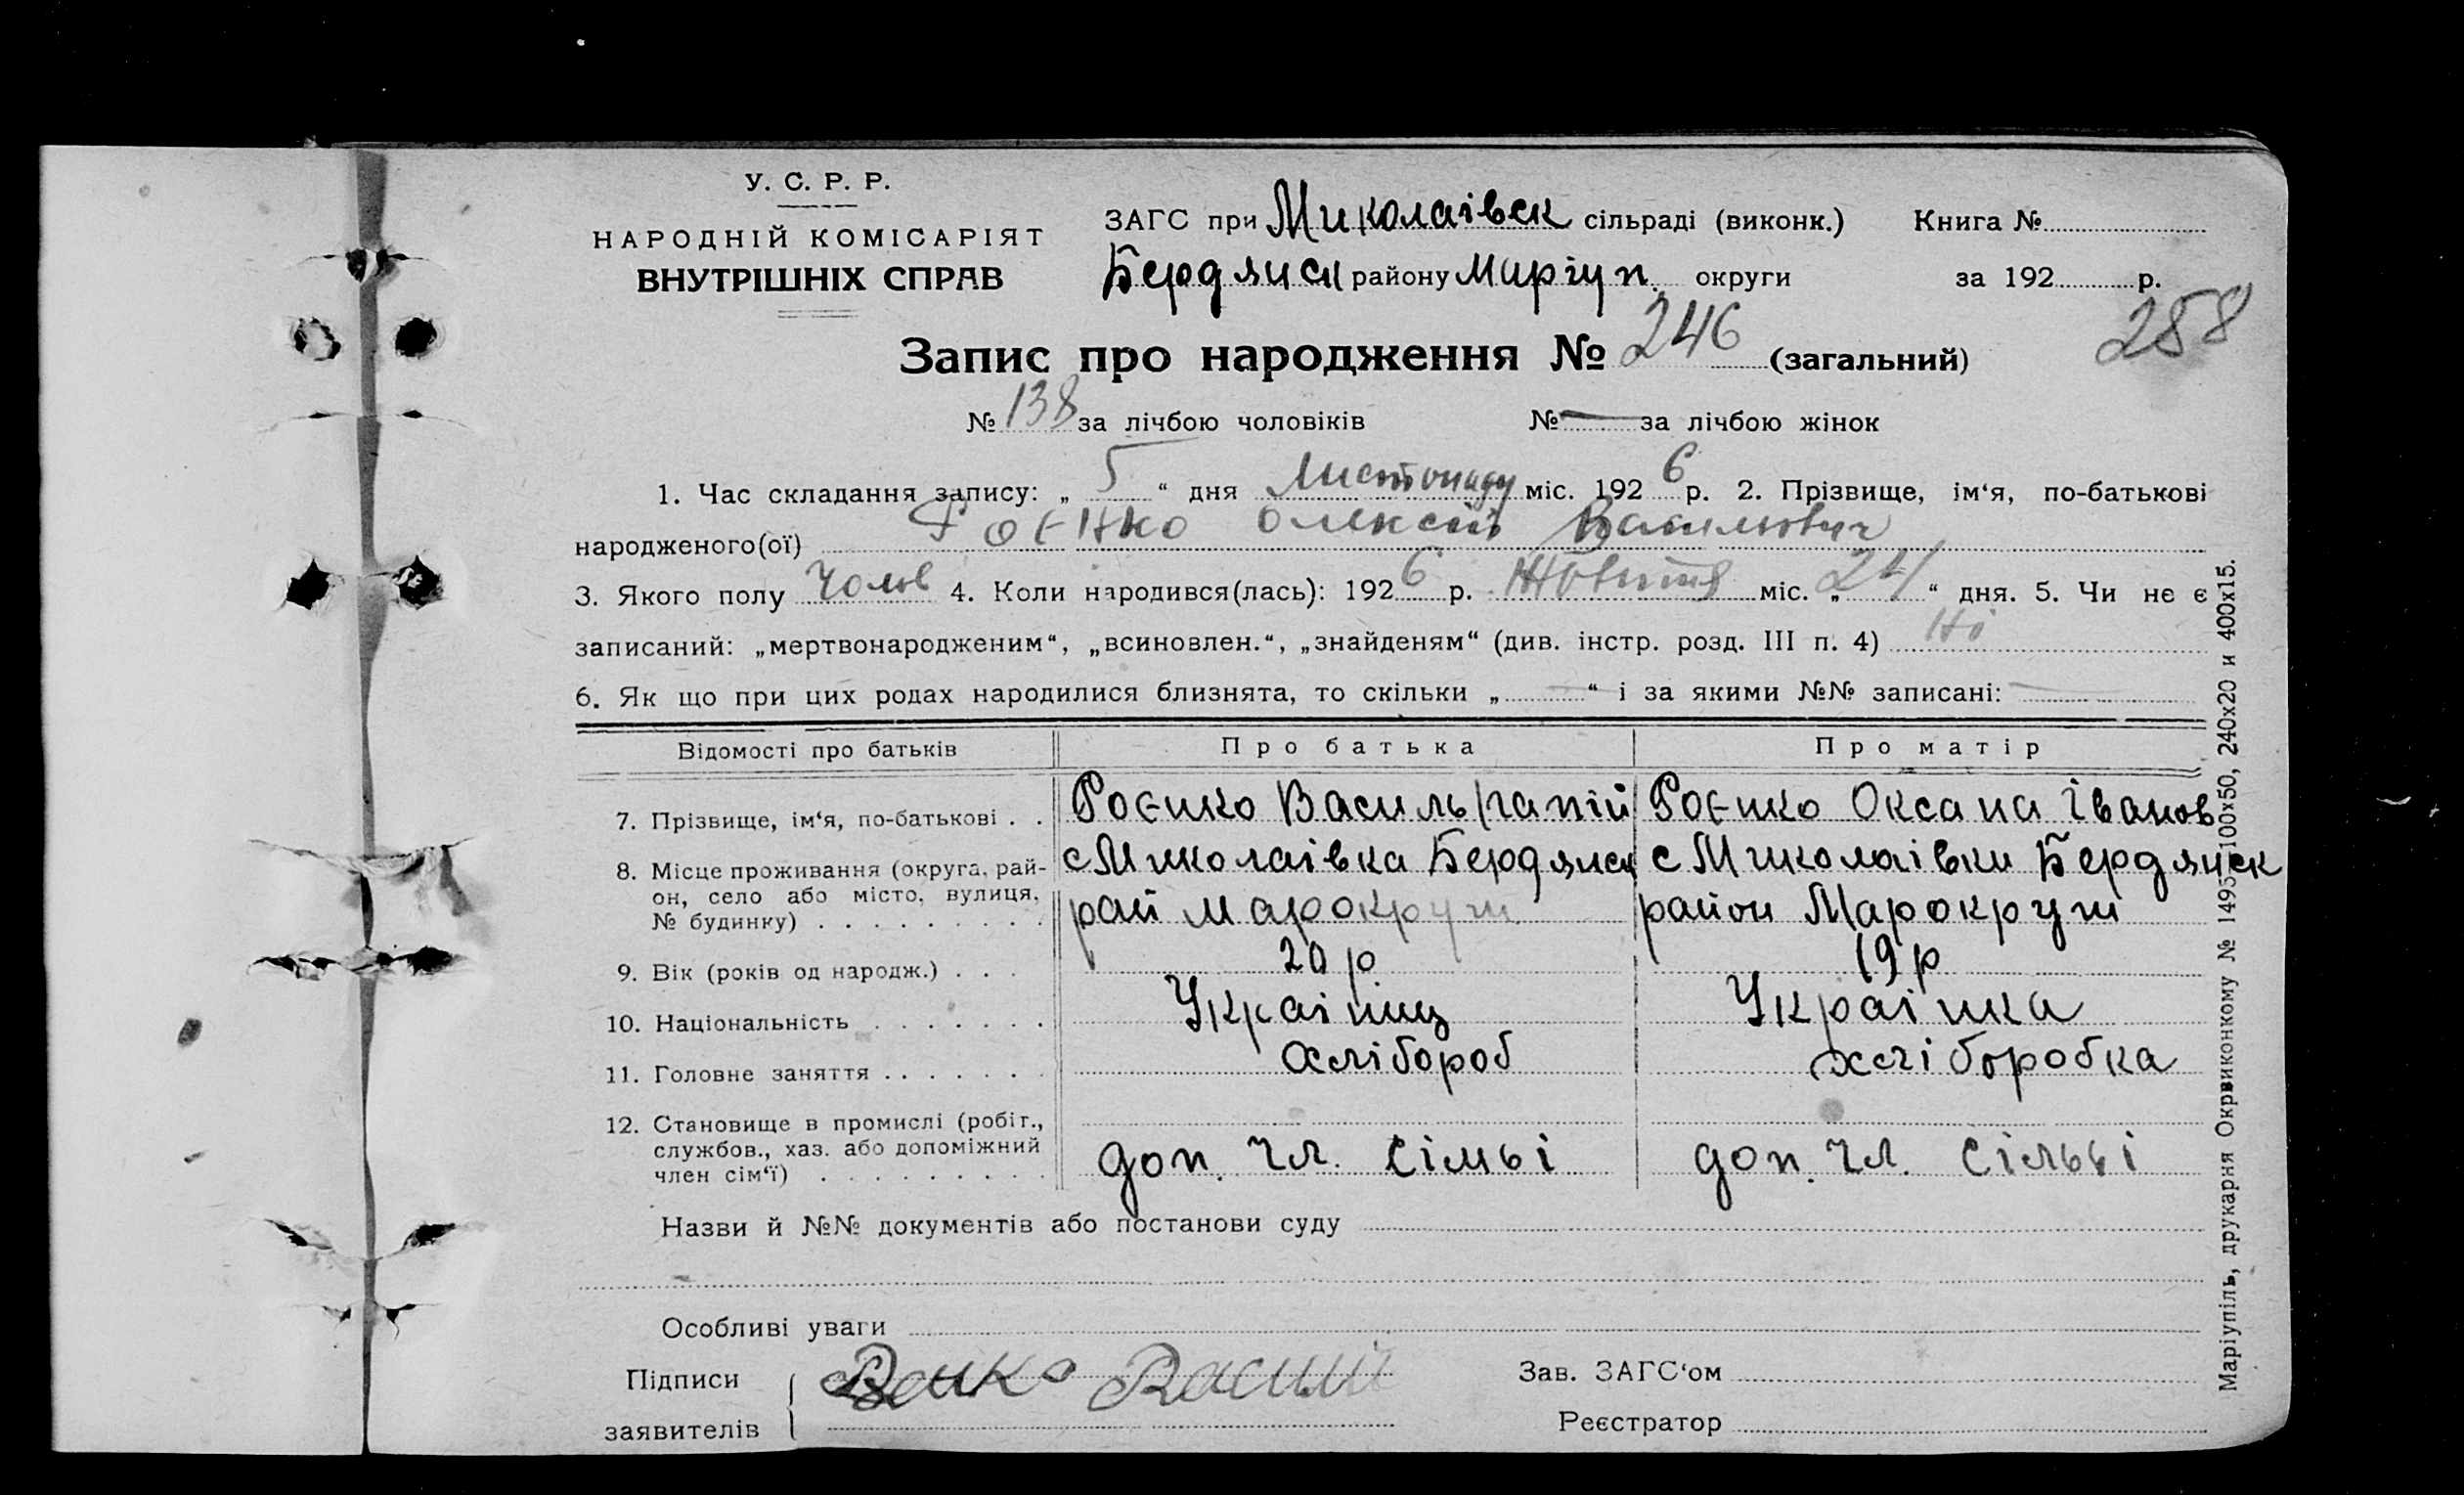 У. С. Р. Р.
НАРОДНІЙ КОМІСАРІЯТ
ВНУТРІШНІХ СПРАВ
ЗАГС при Миколаівск сільраді (виконк.) Книга №
Бердянск району Маріуп. округи за 192 р.
258
Запис про народження № 246 (загальний)
№ 138 за лічбою чоловіків № — за лічбою жінок
1. Час складання запису: „ 5 “ дня Листопаду міс. 192 6 р. 2. Прізвище, ім‘я, по-батькові
народженого(ої) Роєнко Олексій Васильович
3. Якого полу Чолов 4. Коли народився(лась): 192 6 р. Жовтня міс. „ 24 “ дня. 5. Чи не є
записаний: „мертвонародженим“, „всиновлен.“, „знайденям“ (див. інстр. розд. III п. 4) Ні
6. Як що при цих родах народилися близнята, то скільки „ — “ і за якими №№ записані: —
Відомості про батьків Про батька Про матір
7. Прізвище, ім‘я, по-батькові . . Роєнко Василь Роєнко Оксана Іванов
8. Місце проживання (округа, рай- с Миколаівка Бердянск с Миколаівки Бердянск
он, село або місто, вулиця, рай Марокруги район Марокруги
№ будинку) . . . . . . . . .
9. Вік (років од народж.) . . . 20 р 19 р
10. Національність . . . . . . . Украінец Украінка
11. Головне заняття . . . . . . . Хлібороб хліборобка
12. Становище в промислі (робіт.,
службов., хаз. або допоміжний доп. чл. сімьі доп. чл. сімьі
член сім‘ї) . . . . . . . . .
Назви й №№ документів або постанови суду
Особливі уваги
Підписи
заявителів
Зав. ЗАГС‘ом
Реєстратор
Маріупіль, друкарня Окрвиконкому № 1495—100x50, 240x20 и 400x15.